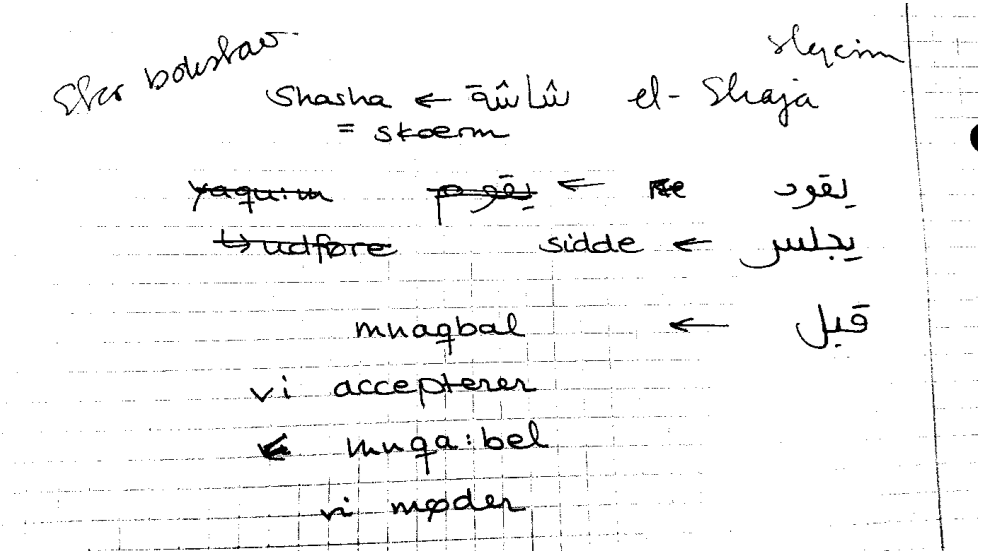 bokstav
Shasha ← شاشة el-Shaja
= skærm
yaqu:m يقوم ← يقود
↳ udføre sidde ← يجلس
mnaqbal ← قبل
vi accepterer
← mnqa:bel
vi møder